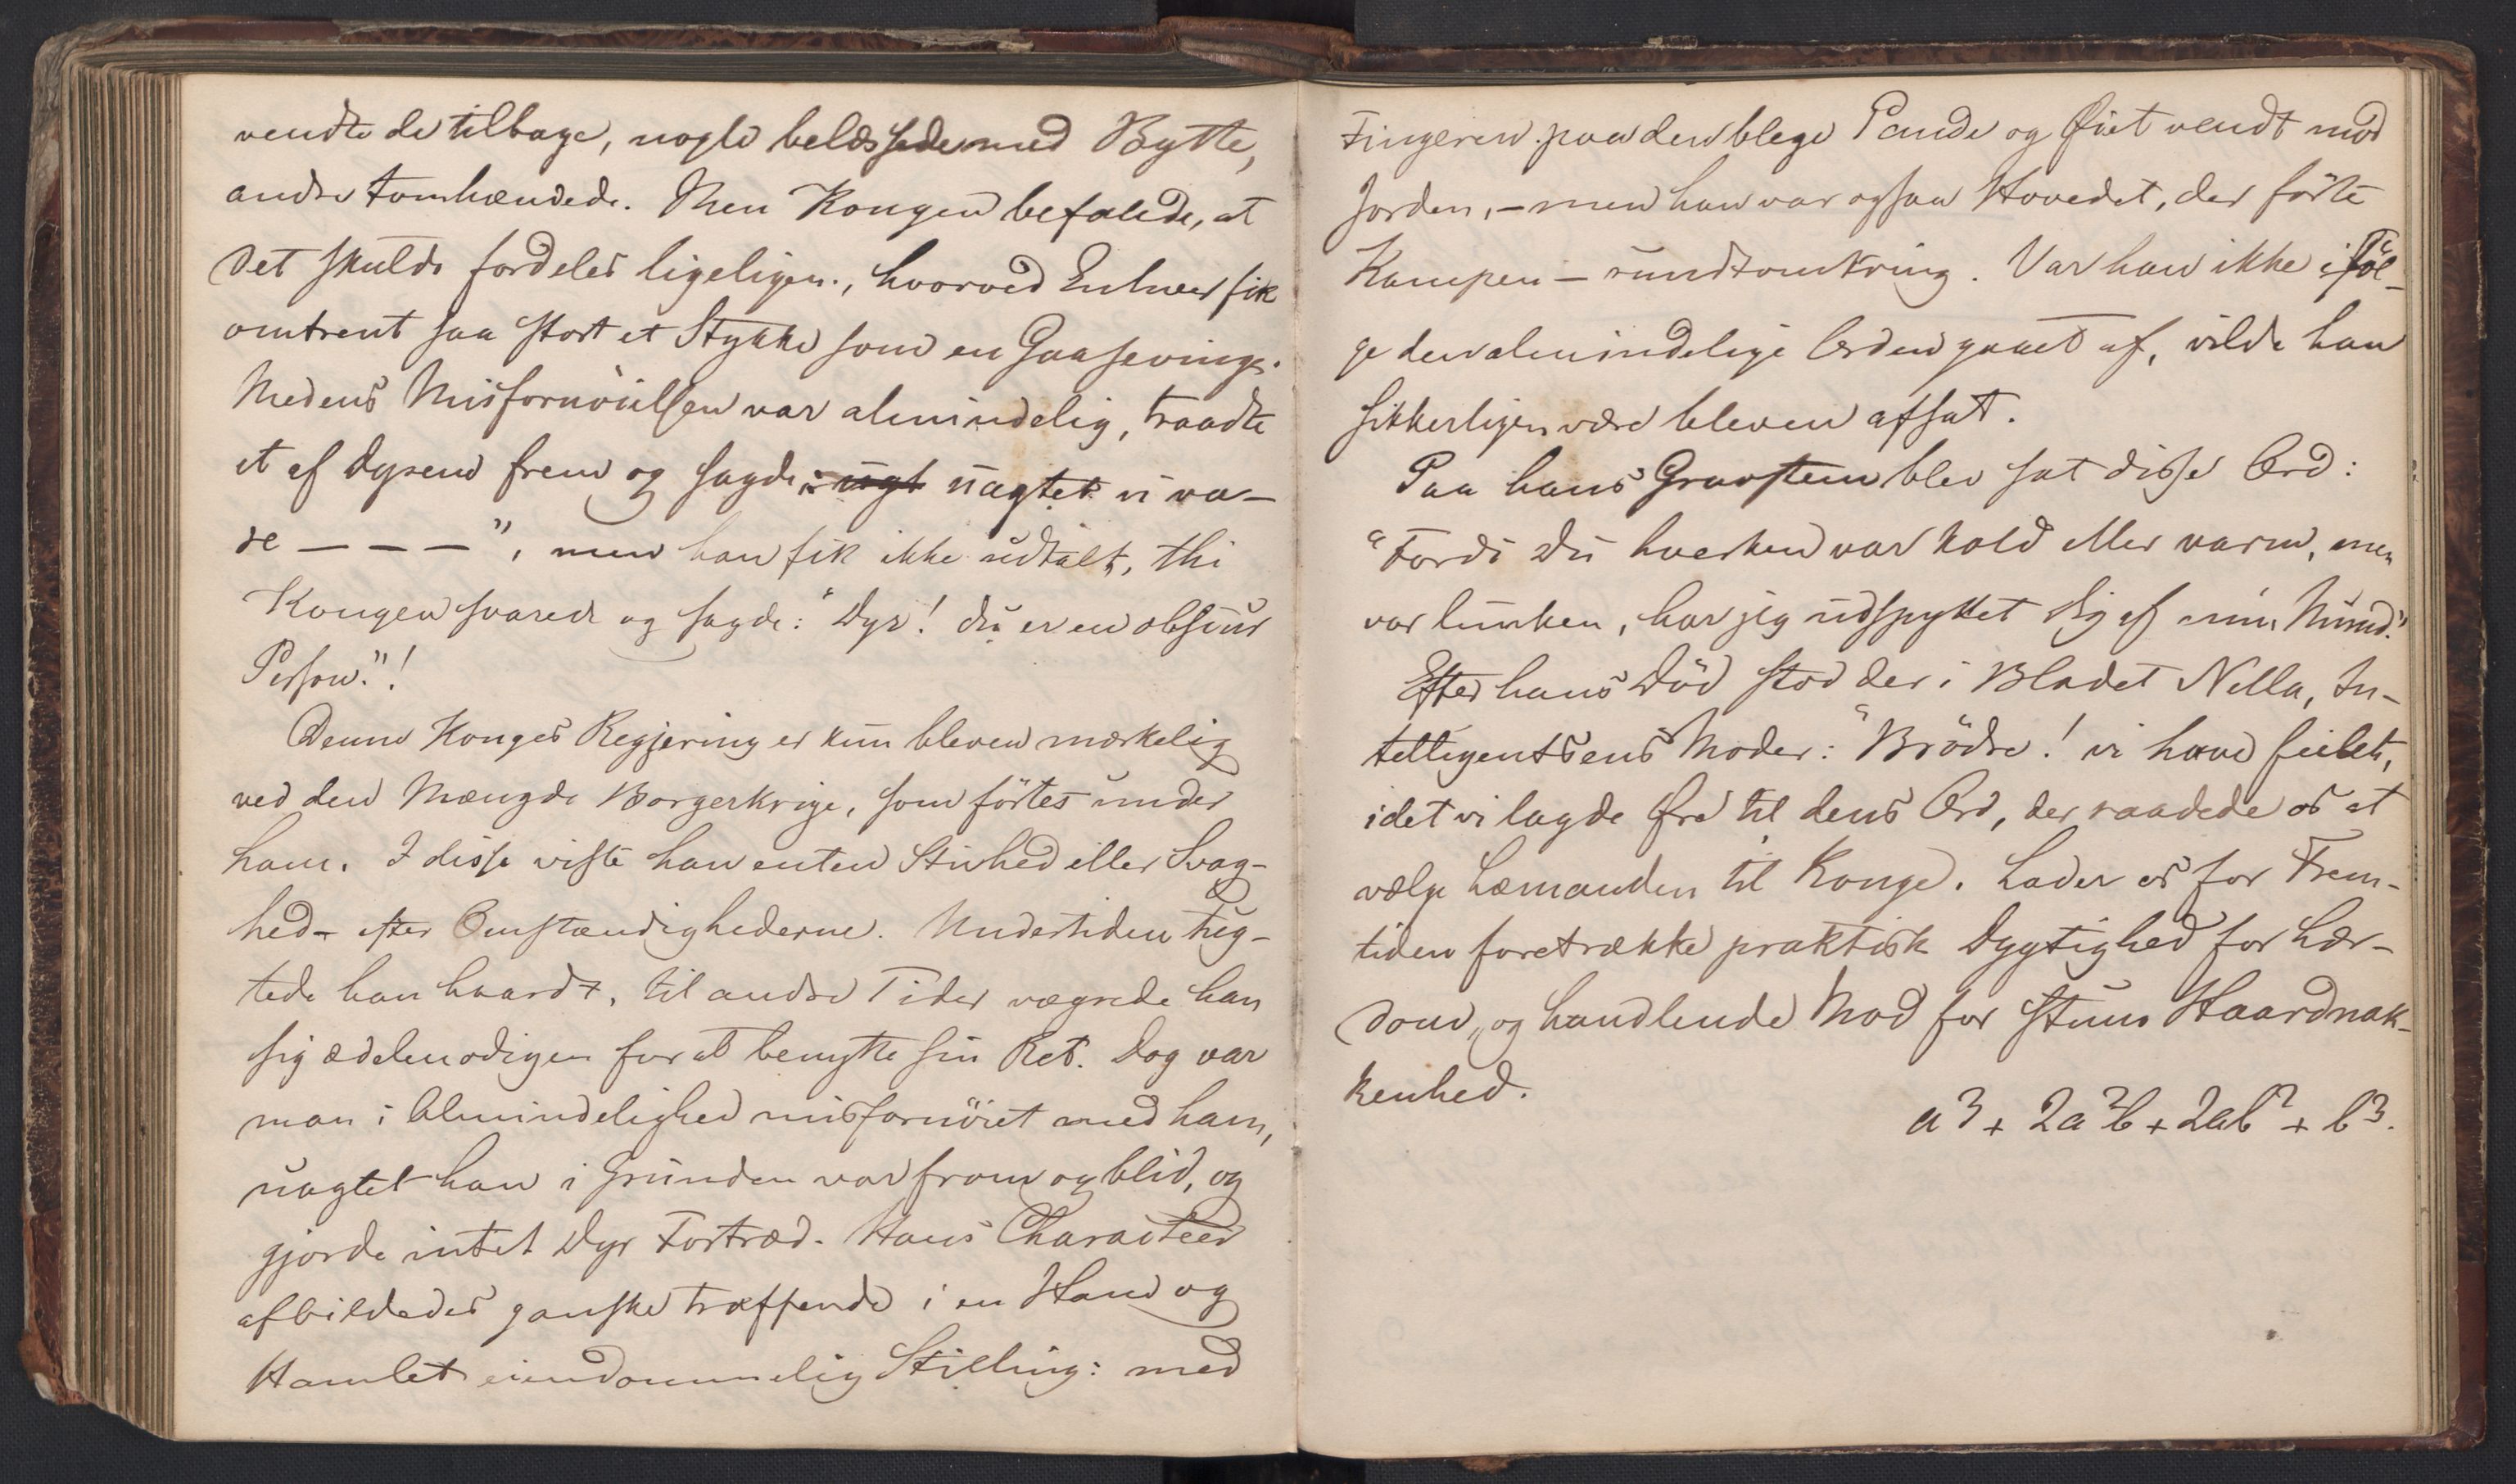 vendte de tilbage, nogle belæssede med Bytte,
andre tomhændede. Men Kongen befalede, at
det skulde fordeles ligeligen, hvorved Enhver fik
omtrent saa stort et Stykke som en Gaasevinge.
Medens Misfornöielsen var almindelig, traadte
et af Dyrene frem og sagde: ugt uagtet vi va-
re – – –", men han fik ikke udtalt, thi
Kongen svarede og sagde: "Dyr! du er en obscur
Person."!
Denne Konges Regjering er kun bleven mærkelig
ved den Mængde Borgerkrige, som förtes under
ham. I disse viste han enten Stivhed eller Svag-
hed – efter Omstændighederne. Undertiden tug-
tede han haardt, til andre Tider vægrede han
sig ædelmodigen for at benytte sin Ret. Dog var
man i Almindelighed misfornöiet med ham,
uagtet han i Grunden var from og blid, og
gjorde intet Dyr Fortræd. Hans Characteer
afbildedes ganske træffende i en Hand og
Hamlet eiendommelig Stilling: med
Fingeren paa den blege Pande og Øiet vendt mod
Jorden, – men han var ogsaa Hovedet, der förte
Kampen – rundtomkring. Var han ikke iföl-
ge den almindelige Orden gaaet af, vilde han
sikkerligen være bleven afsat.
Paa hans Gravsteen blev sat disse Ord:
"Fordi Du hverken var kold eller varm, men
var lunken, har jeg udspyttet Dig af min Mund."
Efter hans Död stod der i Bladet Nella, In-
telligentsens Moder: "Brödre! vi have feilet,
idet vi lagde Øre til dens Ord, der raadede os at
vælge Lærmanden til Konge. Lader os for Frem-
tiden foretrække praktisk Dygtighed for Lær-
dom, og handlende Mod for stum Haardnak-
kenhed.
a³ + 2a²b + 2ab² + b³.